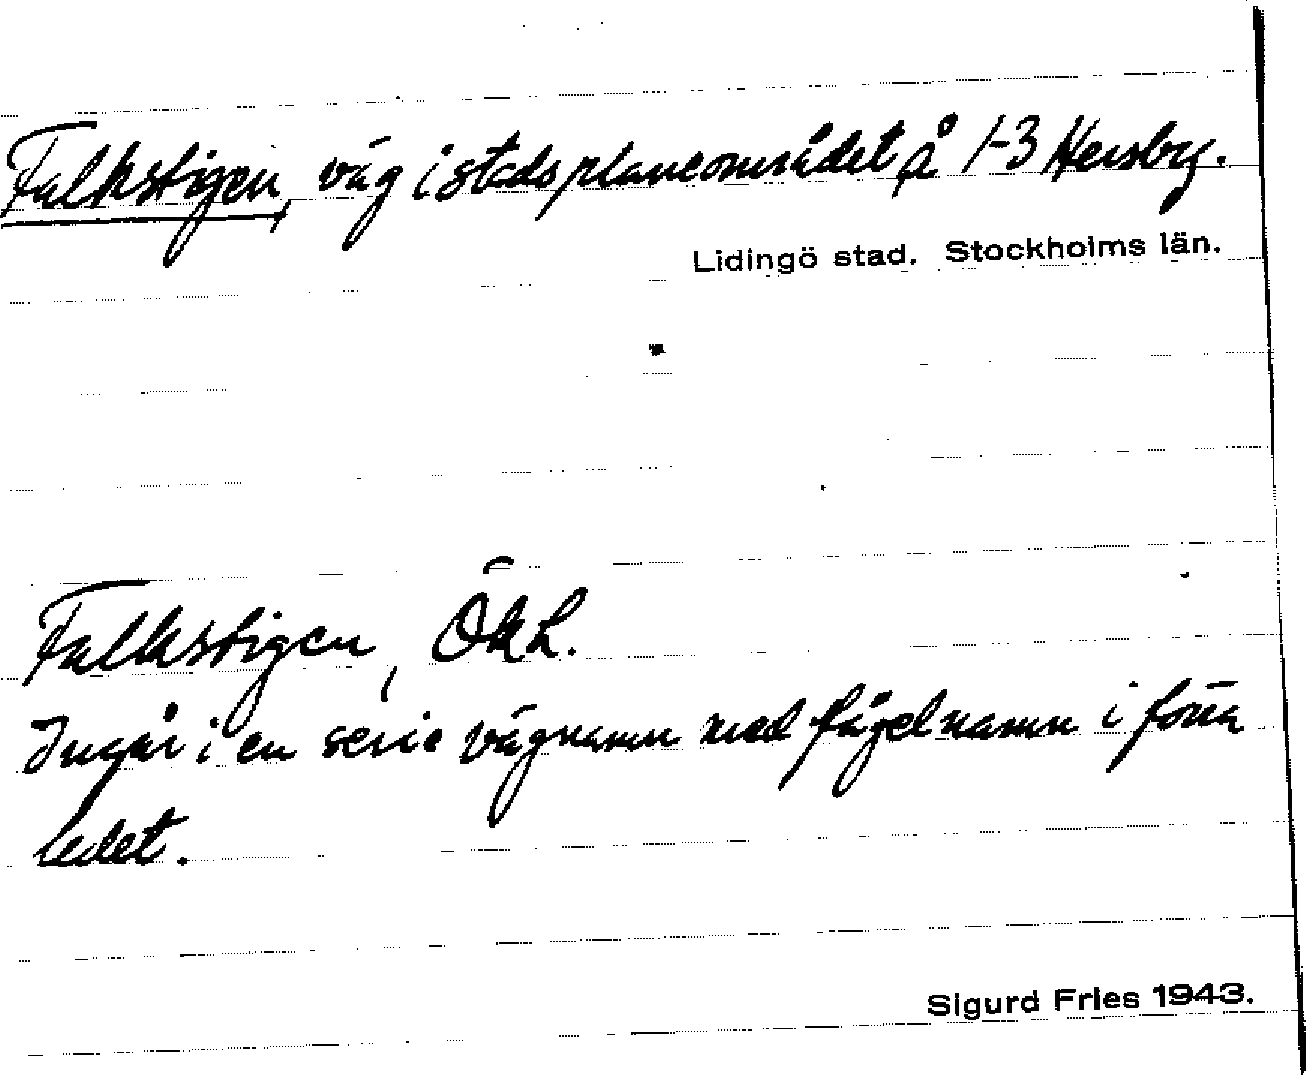 Falkstigen, väg i stadsplaneområdet å 1-3 Hersby.
Lidingö stad. Stockholms län.
Falkstigen, ÖkL.
Ingår i en serie vägnamn med fågelnamn i förra
ledet.
Sigurd Fries 1943.